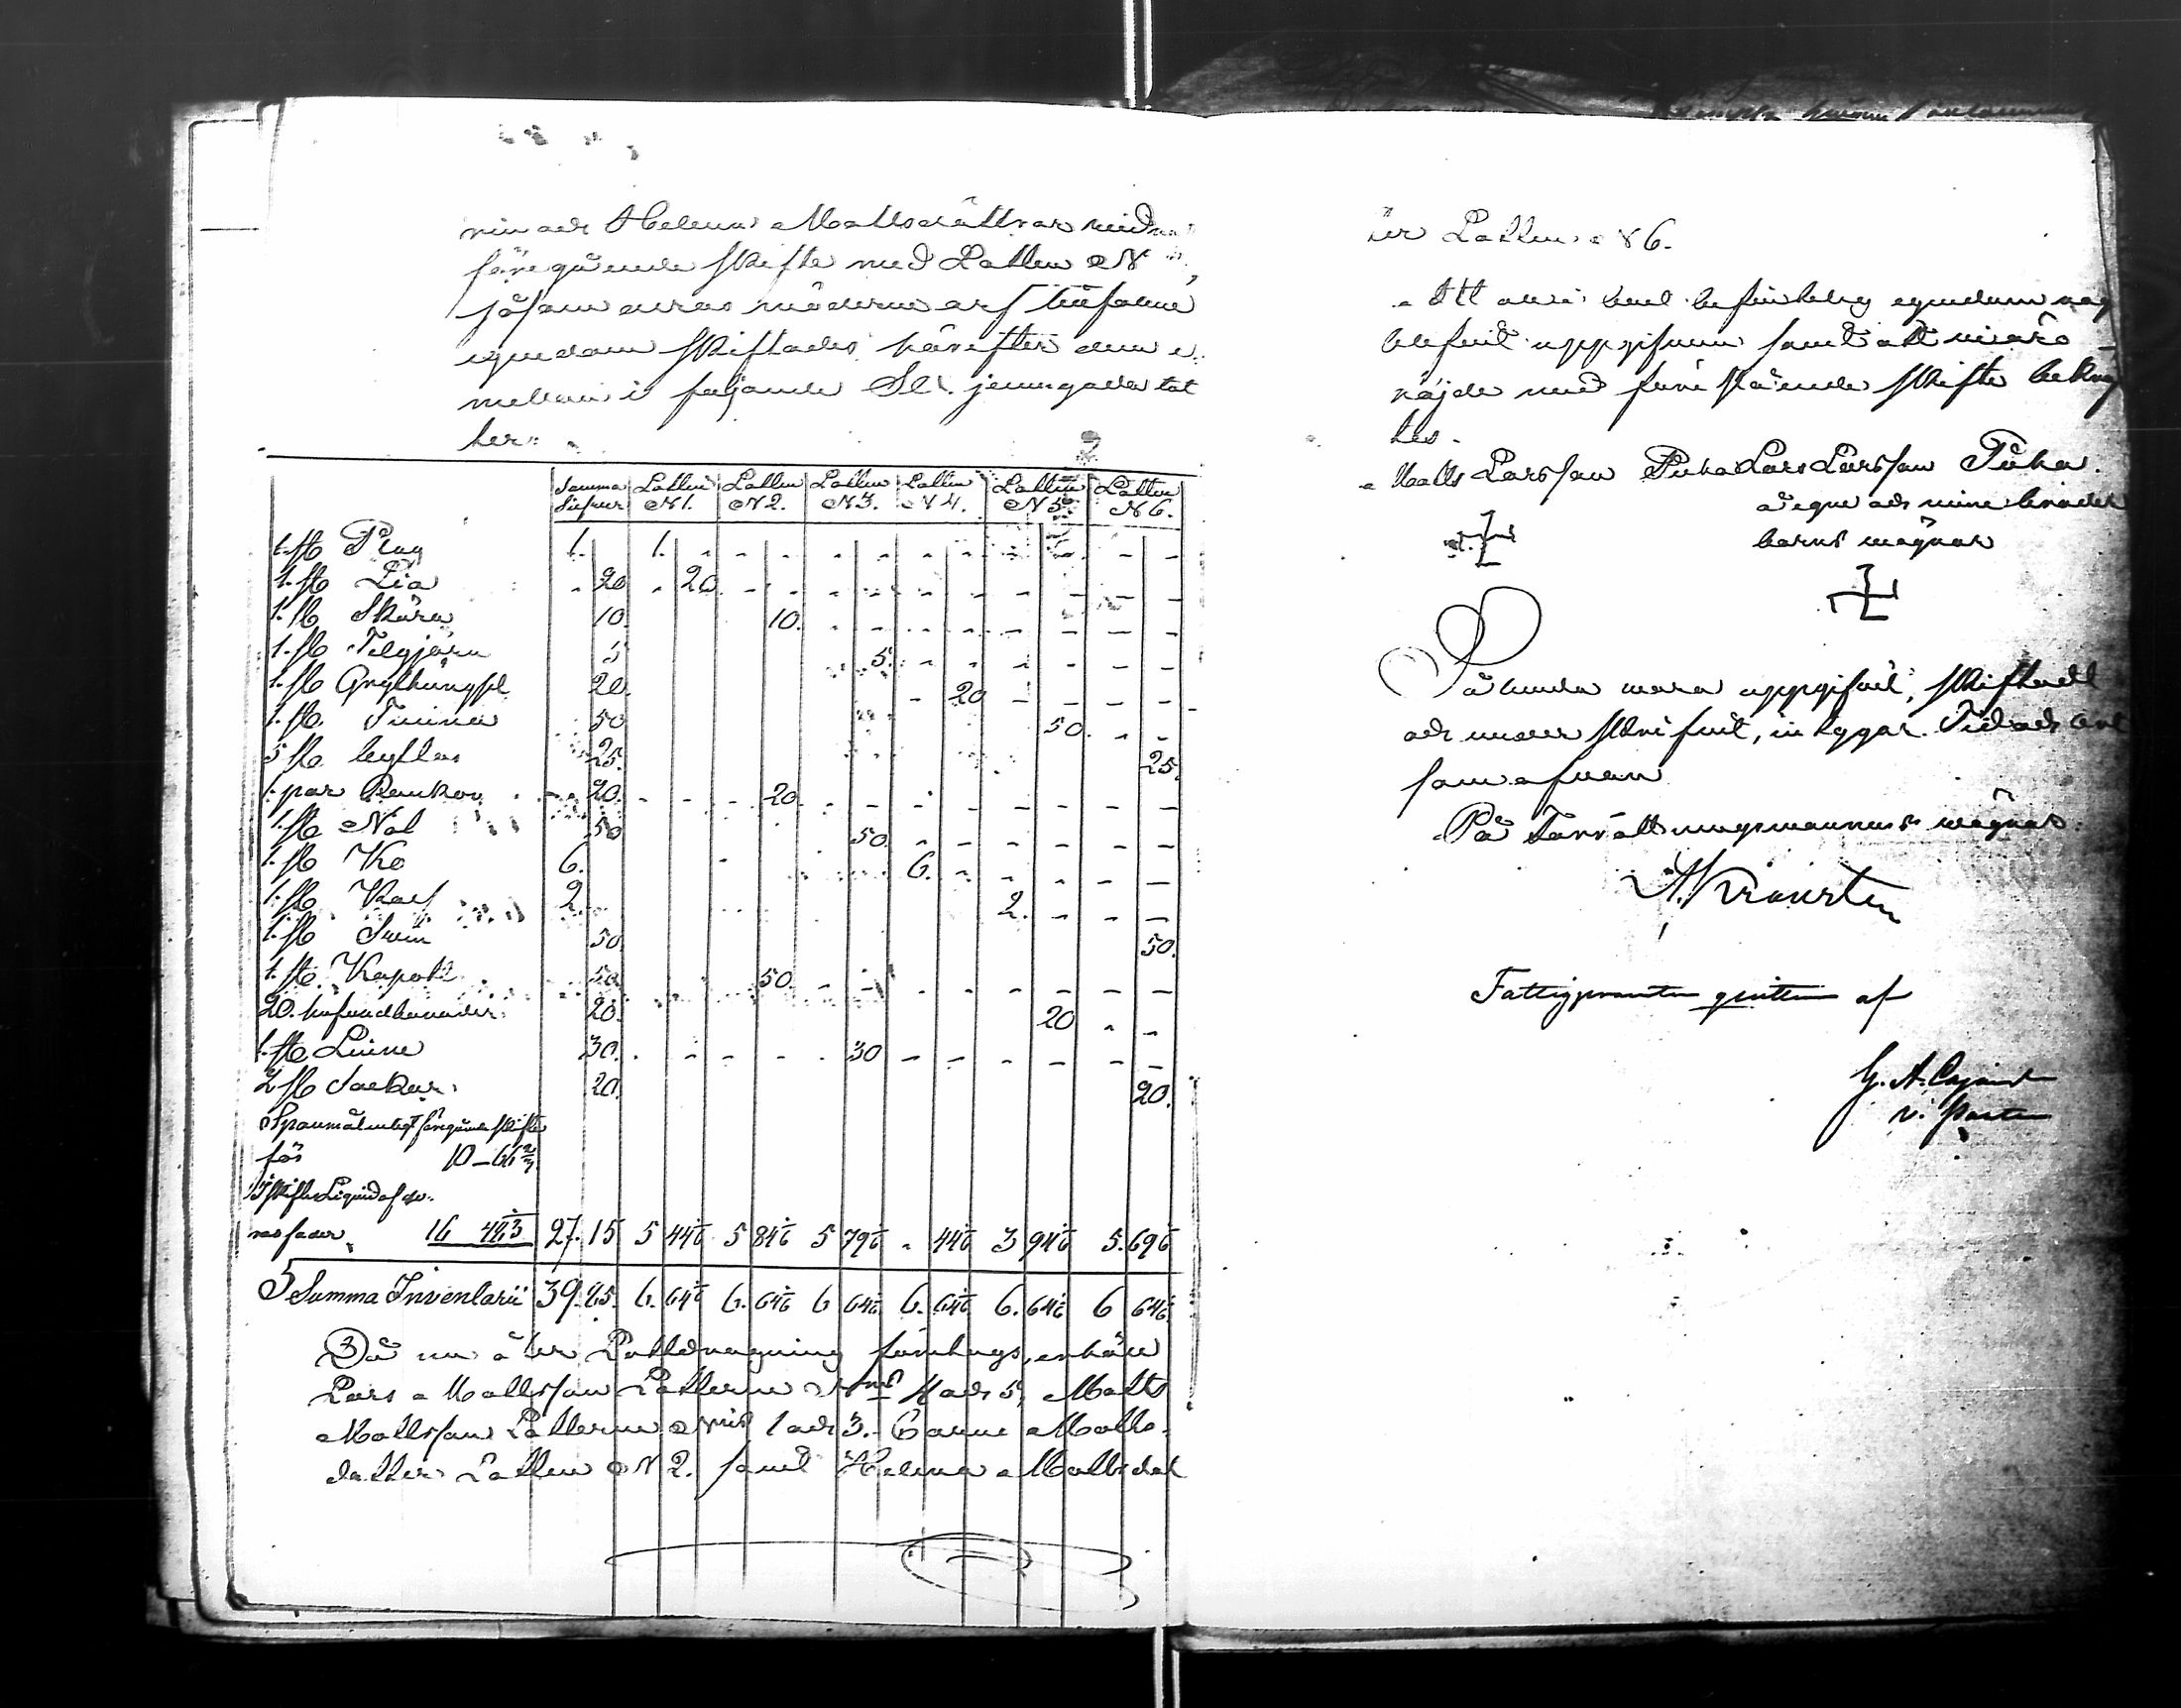 och Helena Mattsdöttrar
föregående skifte med Lotten N
såsom deras möderne arf tillfallne
egendom skiftades härefter dem e
mellan i följande St. jemngoda lot
ter:
Summa Silfver Lotten N 1. Lotten N 2. Lotten N 3. Lotten N 4. Lotten N 5. Lotten N 6.
1. st. Plog 1. 1. - - - - - - - - -
1. st. Lia - 20 - 20 - - - - - - - -
1. st. Skära 10. 10. - - - - - - - -
1. st. Telgjern 5 5. - - - - - -
1. st. 20. - 20 - - - -
1. st. Tunna 50 50. - -
5 st. byttor 25. 25.
1. par 20. - - - 20. - - - - - - - -
1. st. Not 50 50. - - - - - -
1. st. Ko 6. 6. - - - - -
1. st. Kalf 2. 2. - - -
1. st. Svin 50. 50.
1. st. Kapott 50. 50. - - - - - - - -
20. 20. 20 - -
1. st. 30. - - - - 30 - - - - - -
2 st. Säckar 20. 20.
Spanmål enligt föregående skifte
för 10-66 2/3
skifte Liquid af de-
ras fader 16 48 1/3 27. 15 5 44 1/6 5 84 1/6 5 79 1/6 - 44 1/6 3 94 1/6 5. 69 1/6
Summa Inventarii 39. 85. 6. 64 1/6 6. 64 1/6 6 64 1/6 6. 64 1/6 6. 64 1/6 6 64 1/6
Då nu åter Lottdragning företogs, erhöll
Lars Mattsson Lotterne N:ris 4 och 5, Matts
Mattsson Lotterne N:ris 1 och 3. Matts-
dotter Lotten N 2. samt Helena Mattsdot
ter Lotten N 6.
Att allt i boet befintelig egendom
blifvit uppgifven samt att vi äro
nöjde med förestående skifte betyg
tes.
Matts Larsson Puha Lars Larsson Puha.
å egne och mine broder
barns vägnar
Sålunda vara uppgifvit, skiftadt
och underskrifvit, intygar. Tid och ort
som ofvan
På Förrättningsmannens vägnar.
Fattigprocenten qvitteras af
G. A. Cajander
v. Pastor